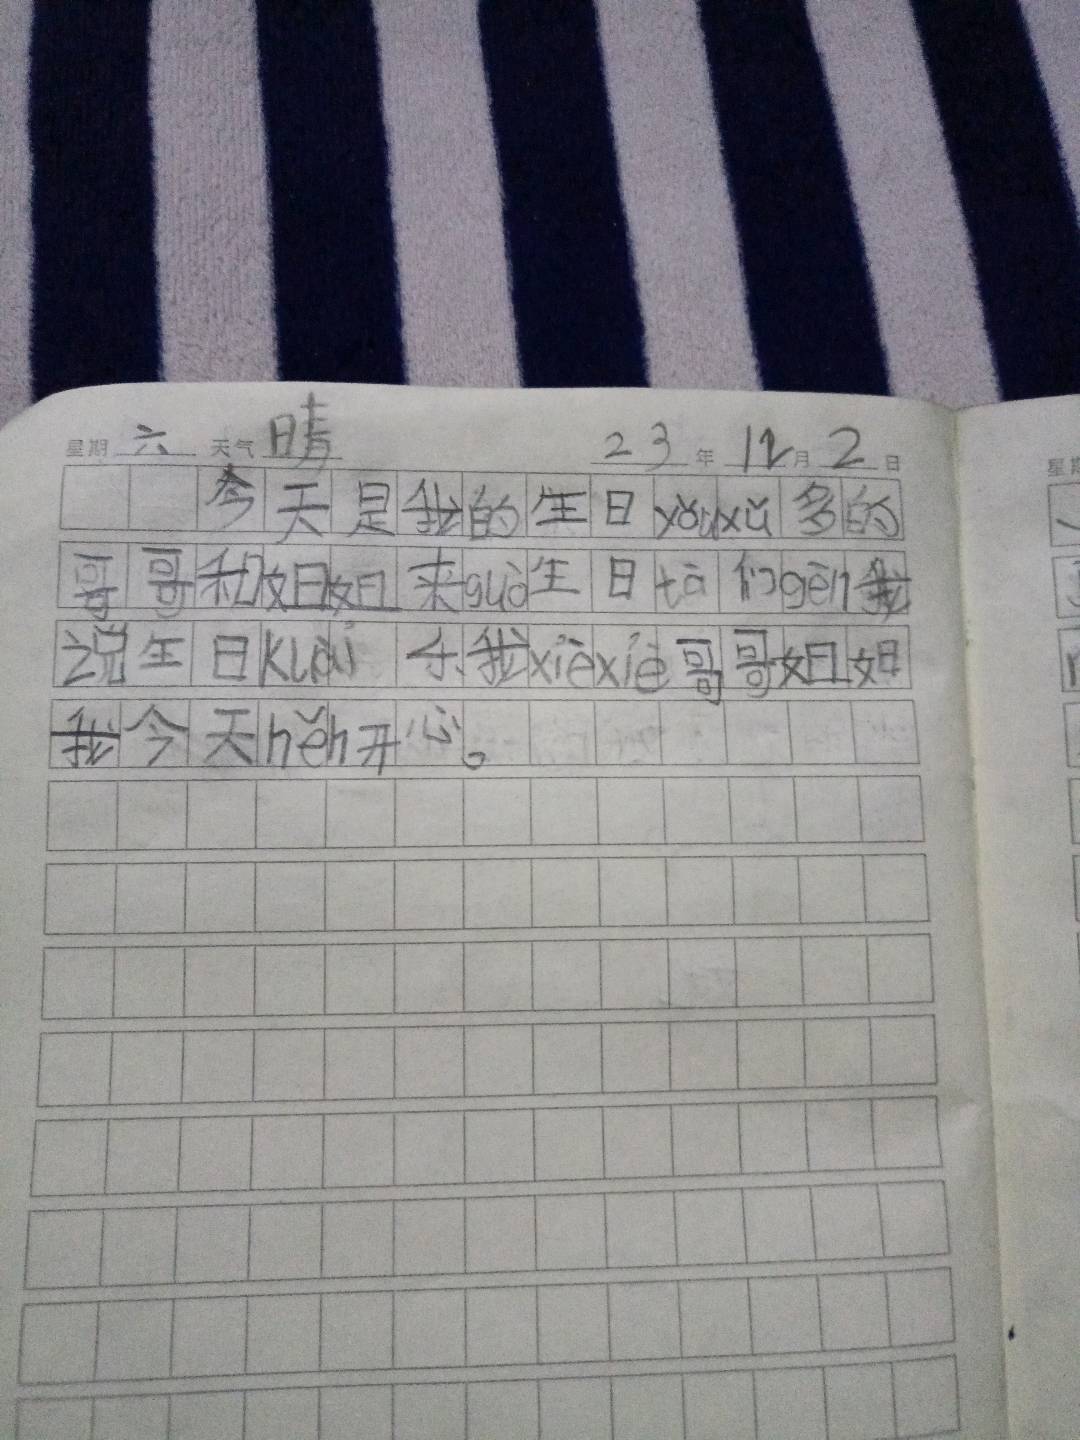 星期 六 天气 晴 23 年 12 月 2 日
今天是我的生日yǒuxǔ多的
哥哥和姐姐来guò生日tā们gēn我
说生日kuài乐我xièxiè哥哥姐姐
我今天hěn开心。
星期